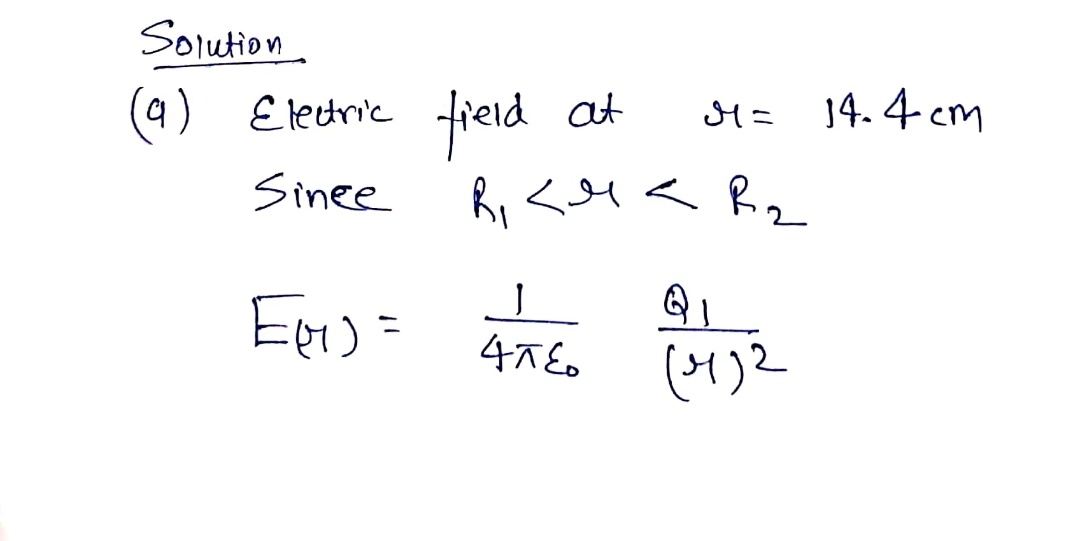 Solution
(a) Electric field at r = 14.4 cm
Since R₁ < r < R₂
E(r) = 1/4πε₀ Q₁/(r)²